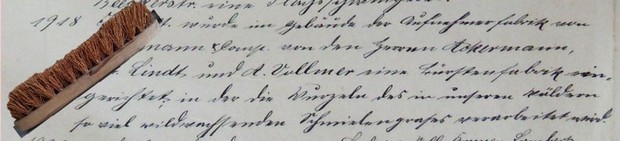 str. eine
1918 wurde im Gebäude der Aufnehmerfabrik von
mann & Comp. von den Herren Ackermann,
Lindt, und A. Vollmer eine Bürstenfabrik ein-
gerichtet, in der die Wurzeln des in unseren Wäldern
so viel wildwachsenden Schmielengrases verarbeitet wird.